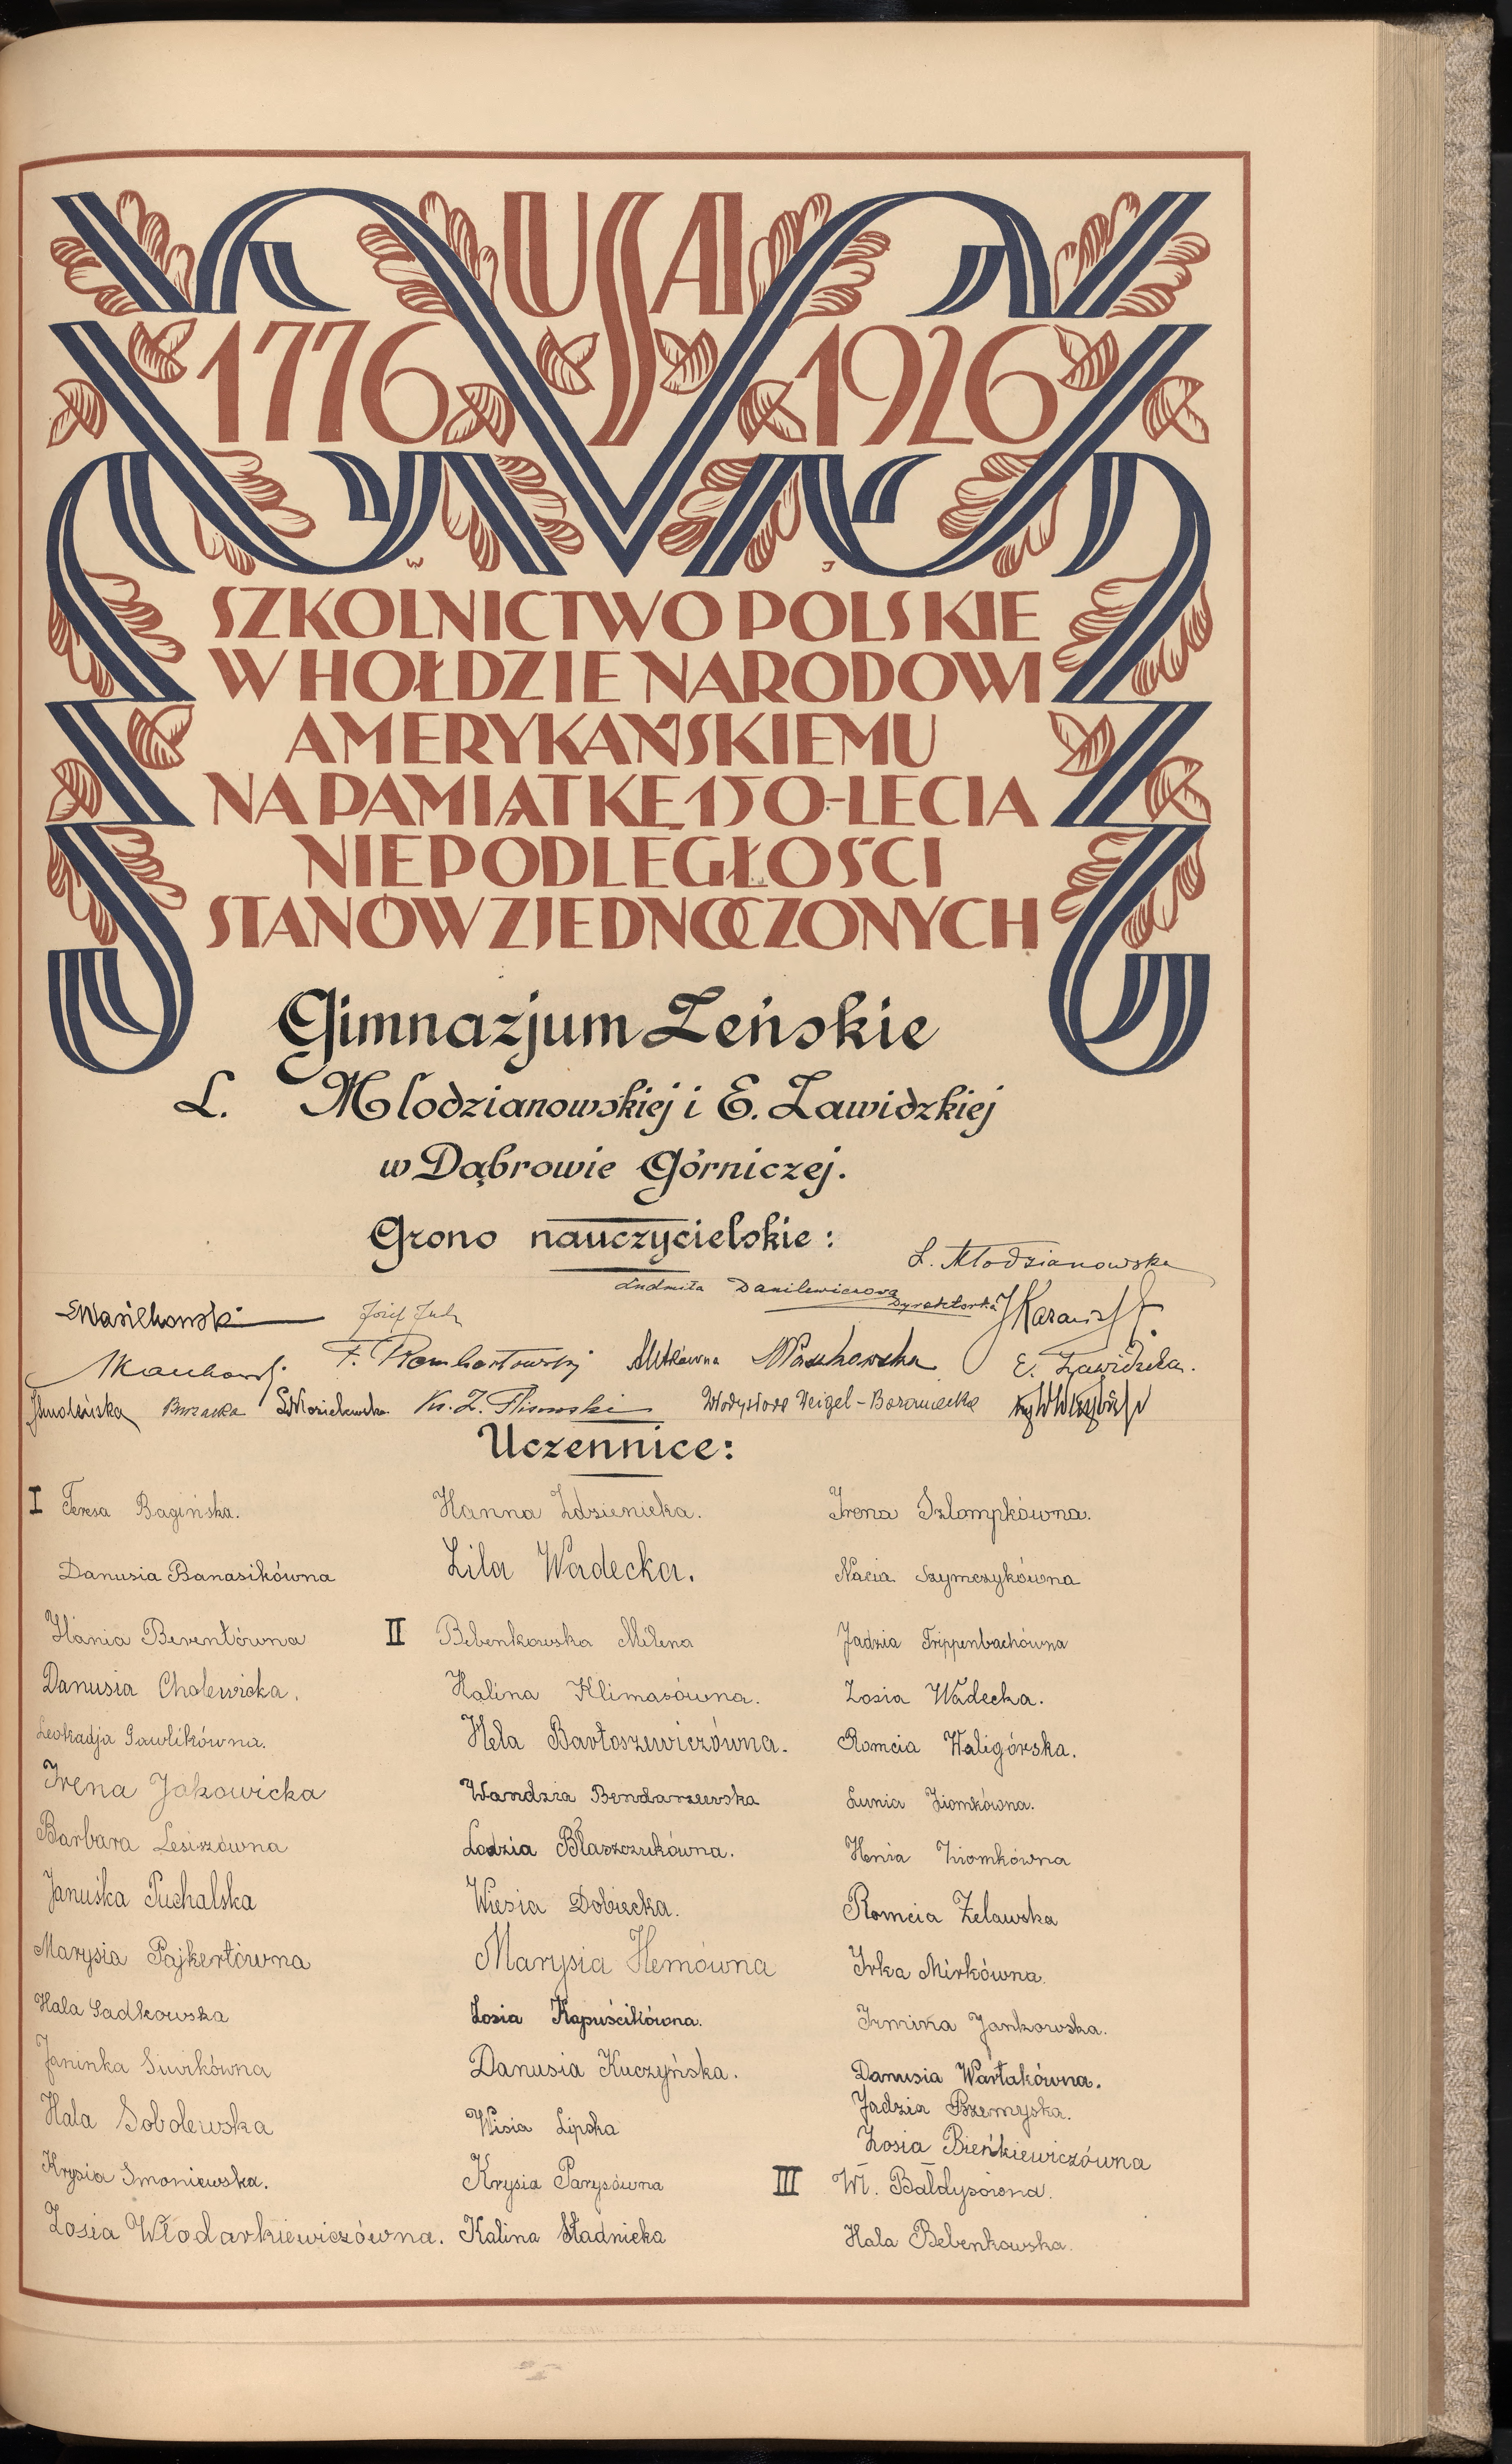 USA
1776 1926
W J
SZKOLNICTWO POLSKIE
W HOŁDZIE NARODOWI
AMERYKAŃSKIEMU
NA PAMIĄTKĘ 150-LECIA
NIEPODLEGŁOŚCI
STANÓW ZJEDNOCZONYCH
Gimnazjum Żeńskie
L. Młodzianowskiej i E. Zawidzkiej
w Dąbrowie Górniczej.
Grono nauczycielskie:
L. Młodzianowska
Ludmiła Danilewiczowa
Dyrektorka
Wasilkowski
Józef
F. Rombartowski
E. Zawidzka.
Smoleńska
Ks. Z.
Władysława Weigel-
Uczennice:
I Teresa Bagińska.
Danusia Banasikówna
Hania Berentówna
Danusia Cholewicka.
Leokadja Gawlikówna.
Irena Jakowicka
Barbara Lesiszówna
Januśka Puchalska
Marysia Pajkertówna
Hala Sadkowska
Janinka Siwikówna
Hala Sobolewska
Krysia Smoniewska.
Zosia Włodarkiewiczówna.
Hanna Zdzienicka.
Lila Wadecka.
II Bebenkowska Milena
Halina Klimasówna.
Hela Bartoszewiczówna.
Wandzia Bendarzewska
Lodzia Błaszczukówna.
Wiesia Dobiecka.
Marysia Hemówna
Zosia Kapuścikówna.
Danusia Kuczyńska.
Wisia Lipska
Krysia Parysówna
Kalina Stadnicka
Irena Szlompkówna.
Nacia Szymczykówna
Jadzia Trippenbachówna
Zosia Wadecka.
Romcia Waligórska.
Lunia Ziomkówna.
Henia Ziomkówna
Romcia Żelawska
Irka Mirkówna.
Irminka Jankowska.
Danusia Wartakówna.
Jadzia Pszemyska.
Zosia Bieńkiewiczówna
III Wł. Bałdysówna.
Hala Bebenkowska.